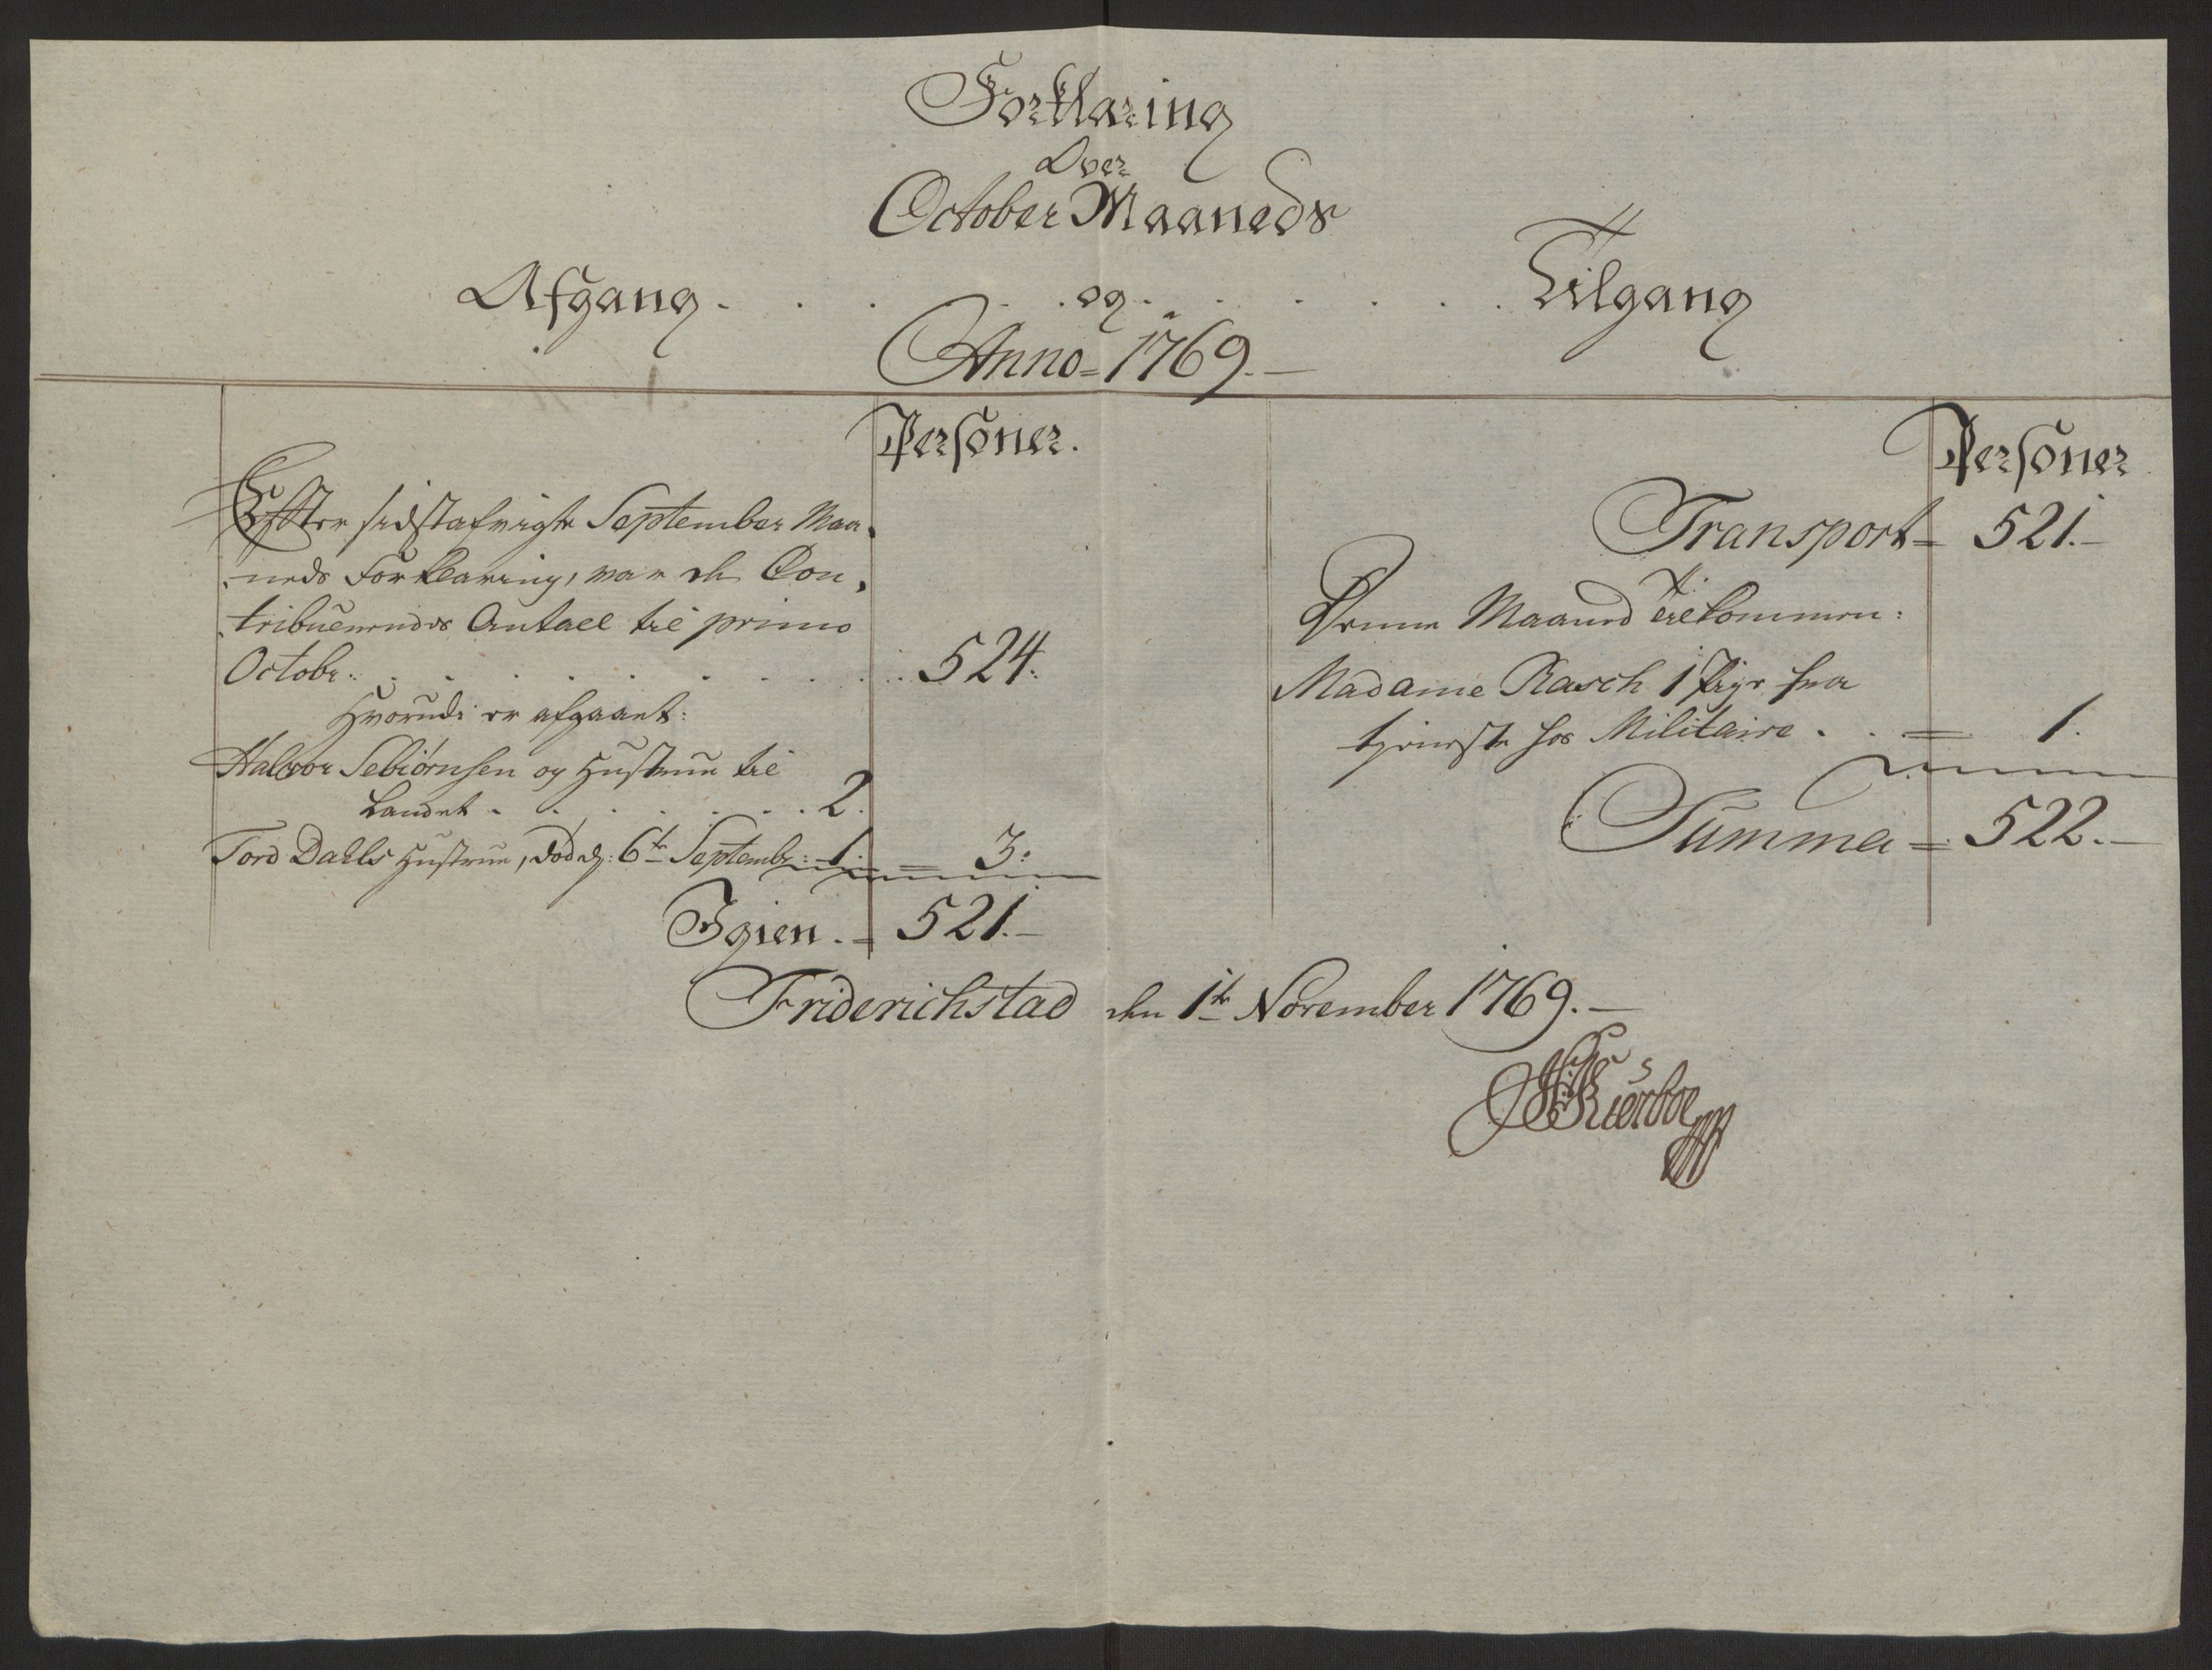 Forklaring
Over
October Maaneds
Afgang . . . . . og . . . . . Tilgang
Anno = 1769. —
Personer.
Effter sidstafvigte September Maa,
neds Forklaring, var de Con,
tribueerendes Antall til primo
Octobr: . . . . . . . . 524.
Hvorudi er afgaaet:
Halvor Sebiørnsen og Hustrue til
Landet . . . . . . . 2.
Tord Dahls Hustrue, død d: 6te Septembr: 1. = 3.
Igien . = 521. —
Personer
Transport = 521. —
Denne Maaned tilkommen:
Madame Rasch 1 Pige fra
tieneste hos Militaire . . = 1.
Summa = 522. —
Friderichstad den 1te November 1769. —
Kierboe